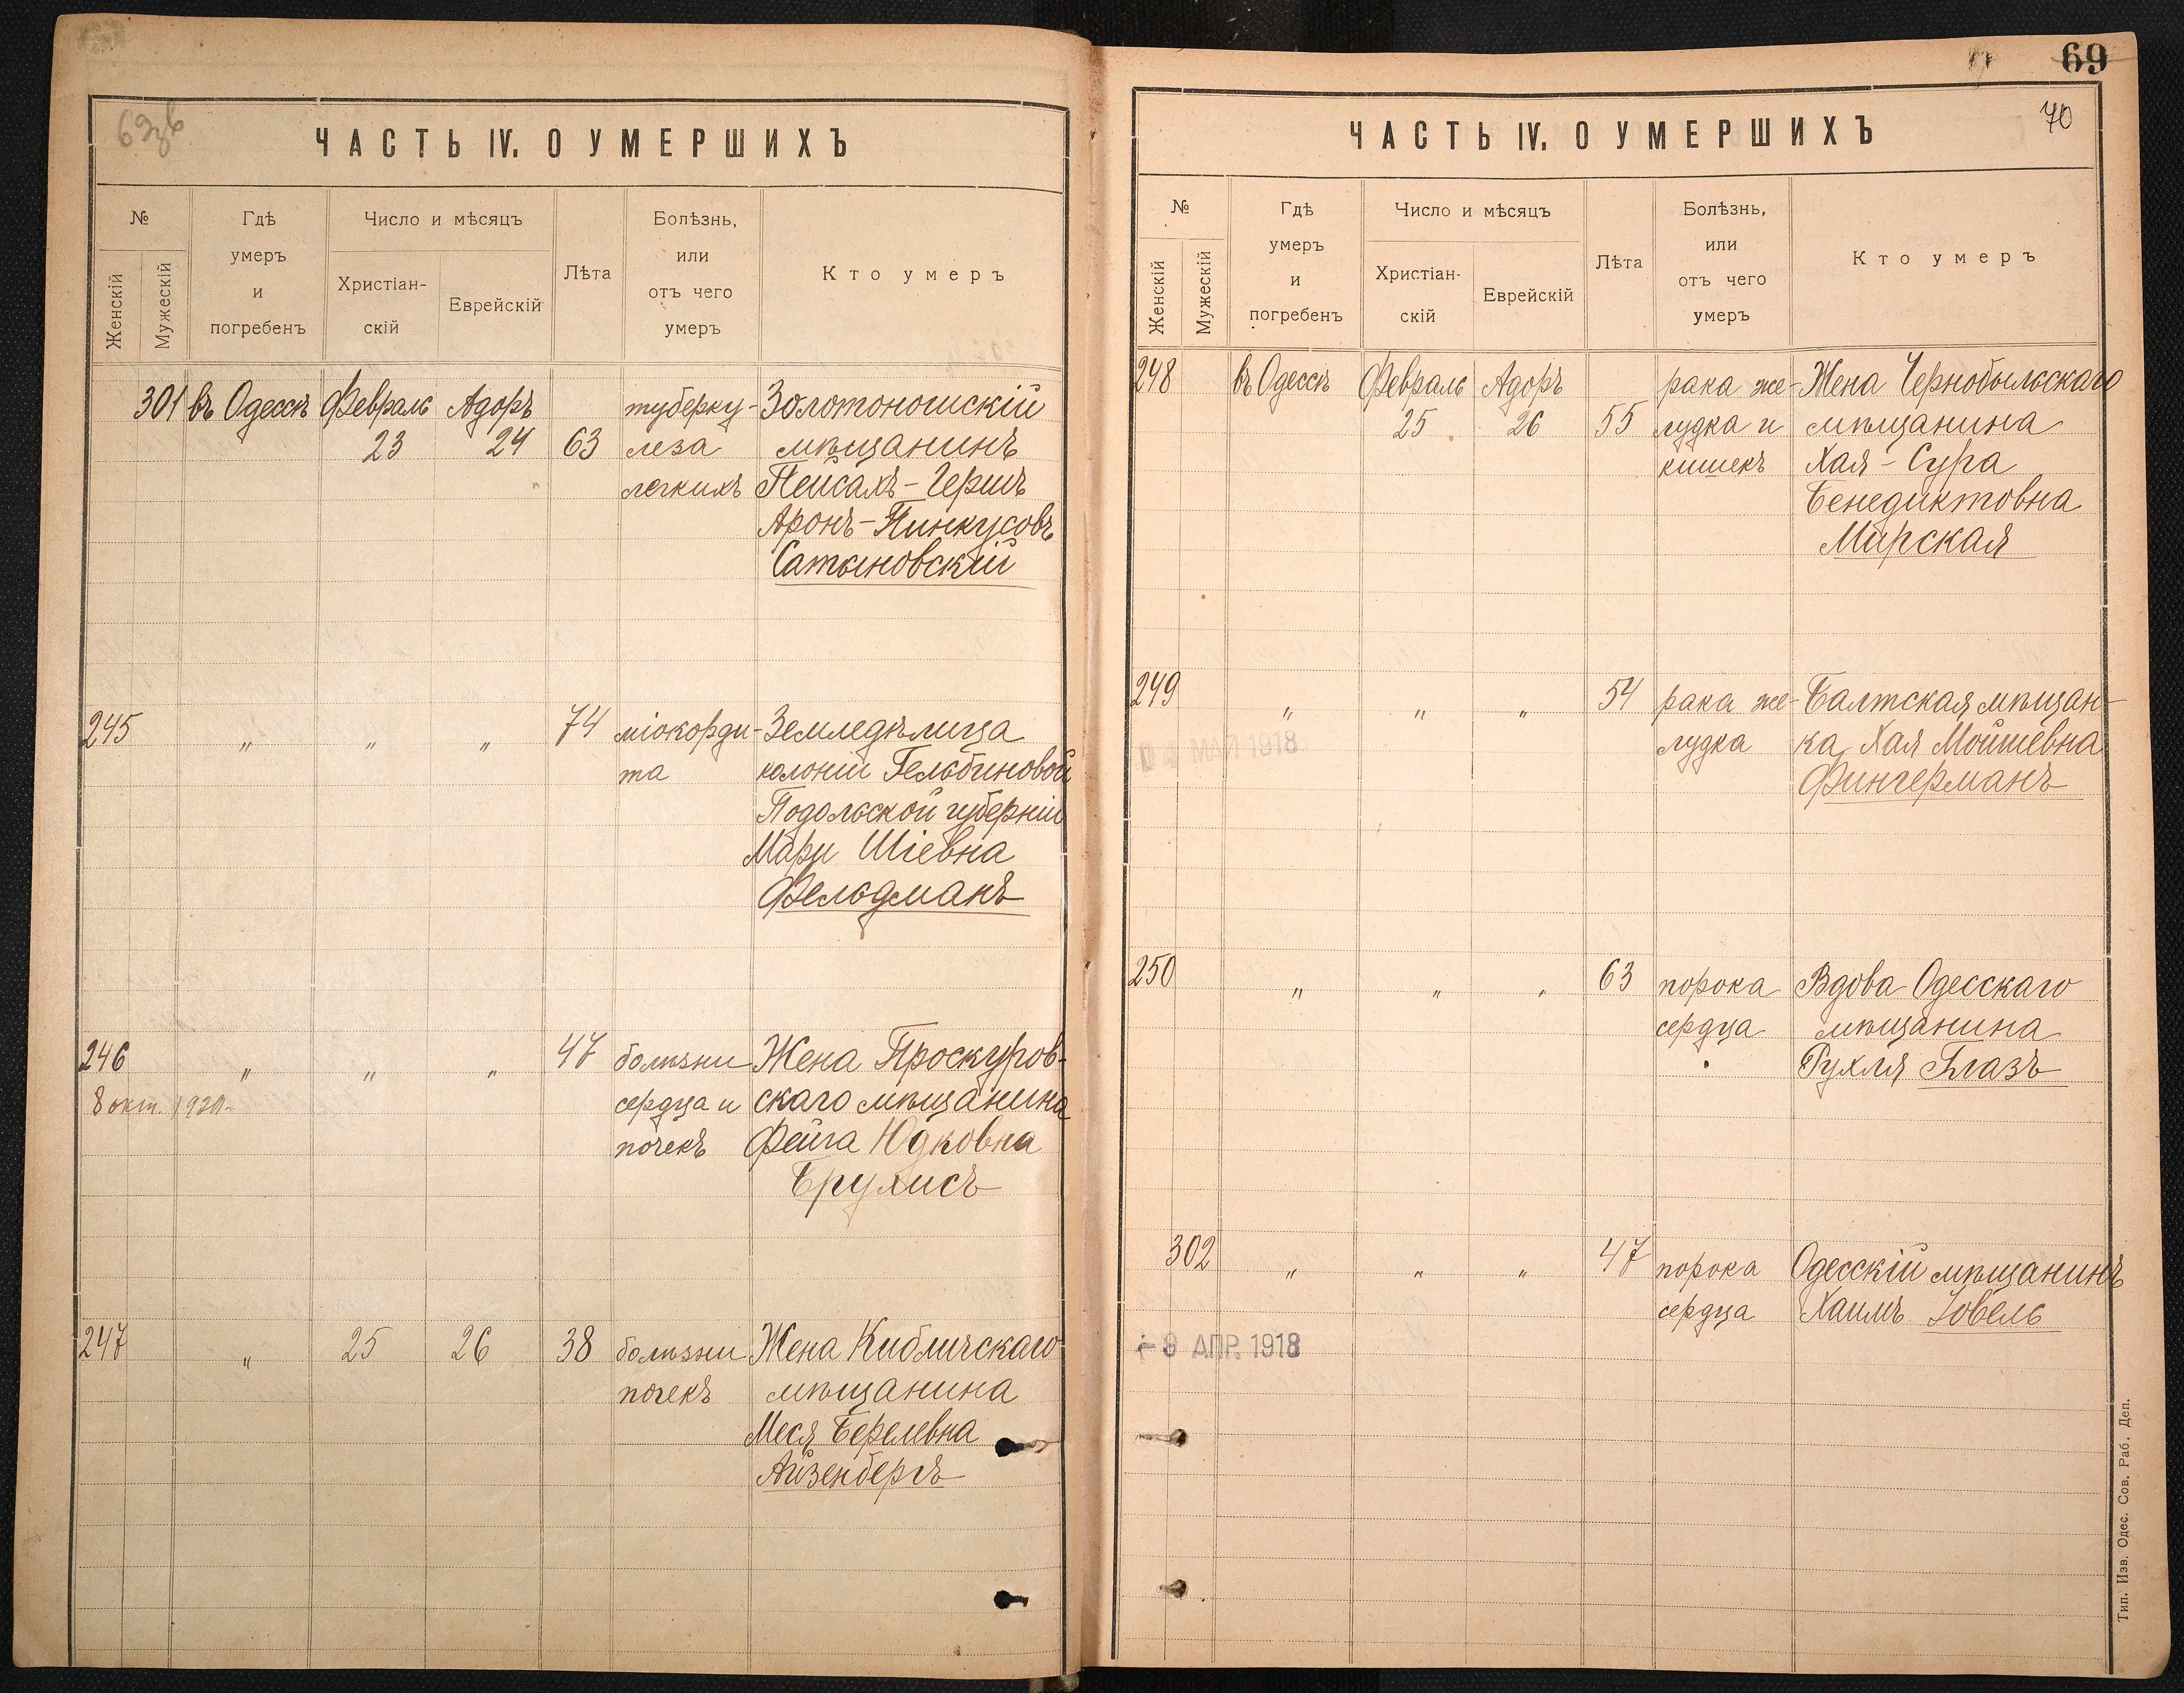 69 зв
ЧАСТЬ IV. О УМЕРШИХЪ
№
Женскій
Мужескій
Гдѣ
умеръ
и
погребенъ
Число и мѣсяцъ
Христіан-
скій
Еврейскій
Лѣта
Болѣзнь,
или
отъ чего
умеръ
Кто умеръ
301 въ Одессѣ Февраль Адоръ туберку- Золотоношскій
23 24 63 леза мѣщанинъ
легкихъ Пейсахъ-Гершъ
Аронъ-Пинкусовъ
Сатановскій
245 " " " 74 міокорди- Земледѣлица
та колоніи Гельбиновой
Подольской губерніи
Мари Шіевна
Фельдманъ
246 " " " 47 болѣзни Жена Проскуров-
8 окт. 1920. сердца и скаго мѣщанина
почекъ Фейга Юдковна
Брухисъ
247 " 25 26 38 болѣзни Жена Кибличскаго
почекъ мѣщанина
Меся Берелевна
Айзенбергъ
69
70
ЧАСТЬ IV. О УМЕРШИХЪ
№
Женскій
Мужескій
Гдѣ
умеръ
и
погребенъ
Число и мѣсяцъ
Христіан-
скій
Еврейскій
Лѣта
Болѣзнь,
или
отъ чего
умеръ
Кто умеръ
248 въ Одессѣ Февраль Адоръ рака же- Жена Чернобыльскаго
25 26 55 лудка и мѣщанина
кишекъ Хая-Сура
Бенедиктовна
Мирская
249 " " " 54 рака же- Балтская мѣщан-
МАЙ 1918 лудка ка Хая Мойшевна
Фингерманъ
250 " " " 63 порока Вдова Одесскаго
сердца мѣщанина
Рухля Глазъ
302 " " " 47 порока Одесскій мѣщанинъ
сердца Хаимъ Зовель
9 АПР. 1918
Тип. Изв. Одес. Сов. Раб. Деп.